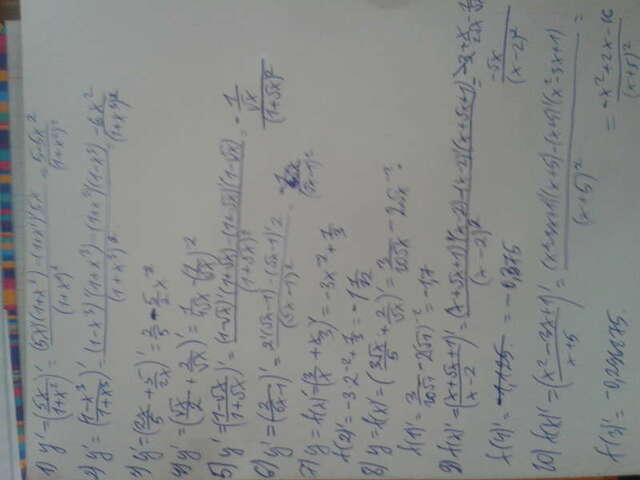 1) y' = (5x/(1+x²))' = ((5x)'(1+x²) - (1+x²)'5x)/(1+x²)² = (5-5x²)/(1+x²)²
2) y' = ((1-x³)/(1+x³))' = ((1-x³)'(1+x³) - (1+x³)'(1-x³))/(1+x³)² = -6x²/(1+x³)²
3) y' = (2x/5 + 5/2x)' = 2/5 - 5/2 x⁻²
4) y' = (√x/2 + 2/√x)' = 1/4√x - (1/√x)⁻²
5) y' = ((1-√x)/(1+√x))' = ((1-√x)'(1+√x) - (1+√x)'(1-√x))/(1+√x)² = -(1/√x)/(1+√x)²
6) y' = (2/(√x-1))' = (2'(√x-1) - (√x-1)'2)/(√x-1)² =
7) y = f(x)' = (3/x + x/3)' = -3x⁻² + 1/3
f(2)' = -3·2⁻² + 1/3 =
8) y = f(x)' = (3√x/5 + 2/√x)' = 3/10√x - 2√x⁻²
f(1)' = 3/10√1 - 2(√1)⁻² = -1,7
9) f(x)' = ((x+5x+1)/(x-2))' = ((x+5x+1)'(x-2) - (x-2)'(x+5x+1))/(x-2)² =
-5x/(x-2)²
f(4)' = -1,125 = -0,375
10) f(x)' = ((x²-3x+1)/(x+5))' = ((x²-3x+1)'(x+5) - (x+5)'(x²-3x+1))/(x+5)² =
= (-x²+2x-16)/(x+5)²
f(3)' =